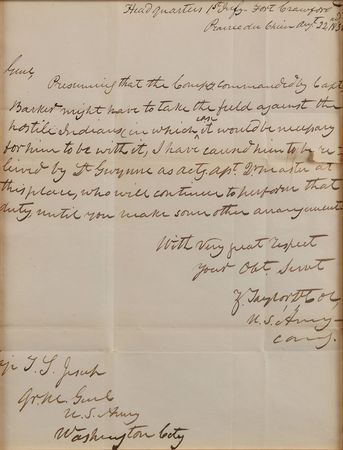 Head quarters 1st Infy Fort Crawford
Prairie du Chien Augt 22nd
Genl
Presuming that the Compy commanded by Capt
Barker might have to take the field against the
hostile Indians, in which case it would be necessary
for him to be with it, I have caused him to be re-
lieved by Lt Gwynne as actg asst Qr master at
this place, who will continue to perform that
duty until you make some other arrangement.
With very great respect
Your Obt. Servt
Z. Taylor Col
U.S. Army
comg.
T. S. Jesup
Qr. M. Genl
U.S. Army
Washington City